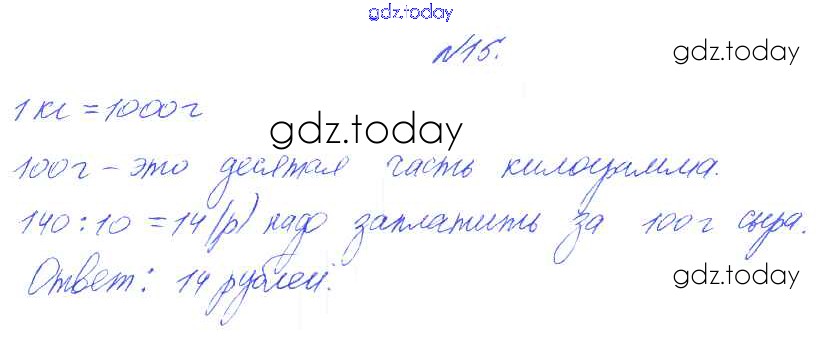 gdz.today
№15.
gdz.today
1 кг = 1000г
gdz.today
100г - это десятая часть килограмма.
140 : 10 = 14 (р) надо заплатить за 100г сыра.
Ответ: 14 рублей.
gdz.today